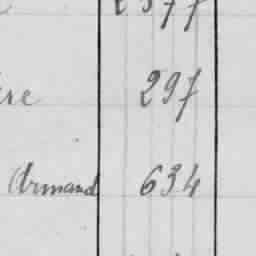 ere 297
Armand 634